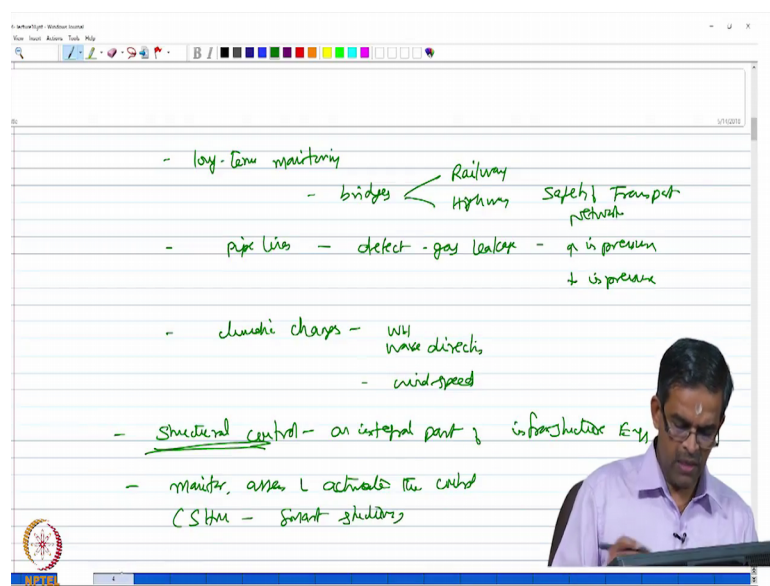 View Insert Actions Tools Help
B I
5/11/2018
- long-term monitoring
- bridges
Railway
Highway
Safety of Transport
network
- pipe lines - detect - gas leakage - ↑ in pressure
↓ in pressure
- climatic changes - WH
wave direction
- wind speed
- Structural control - an integral part of infrastructure Engg
- monitor, assess & activate the control
(SHM - Smart structures
NPTEL
4